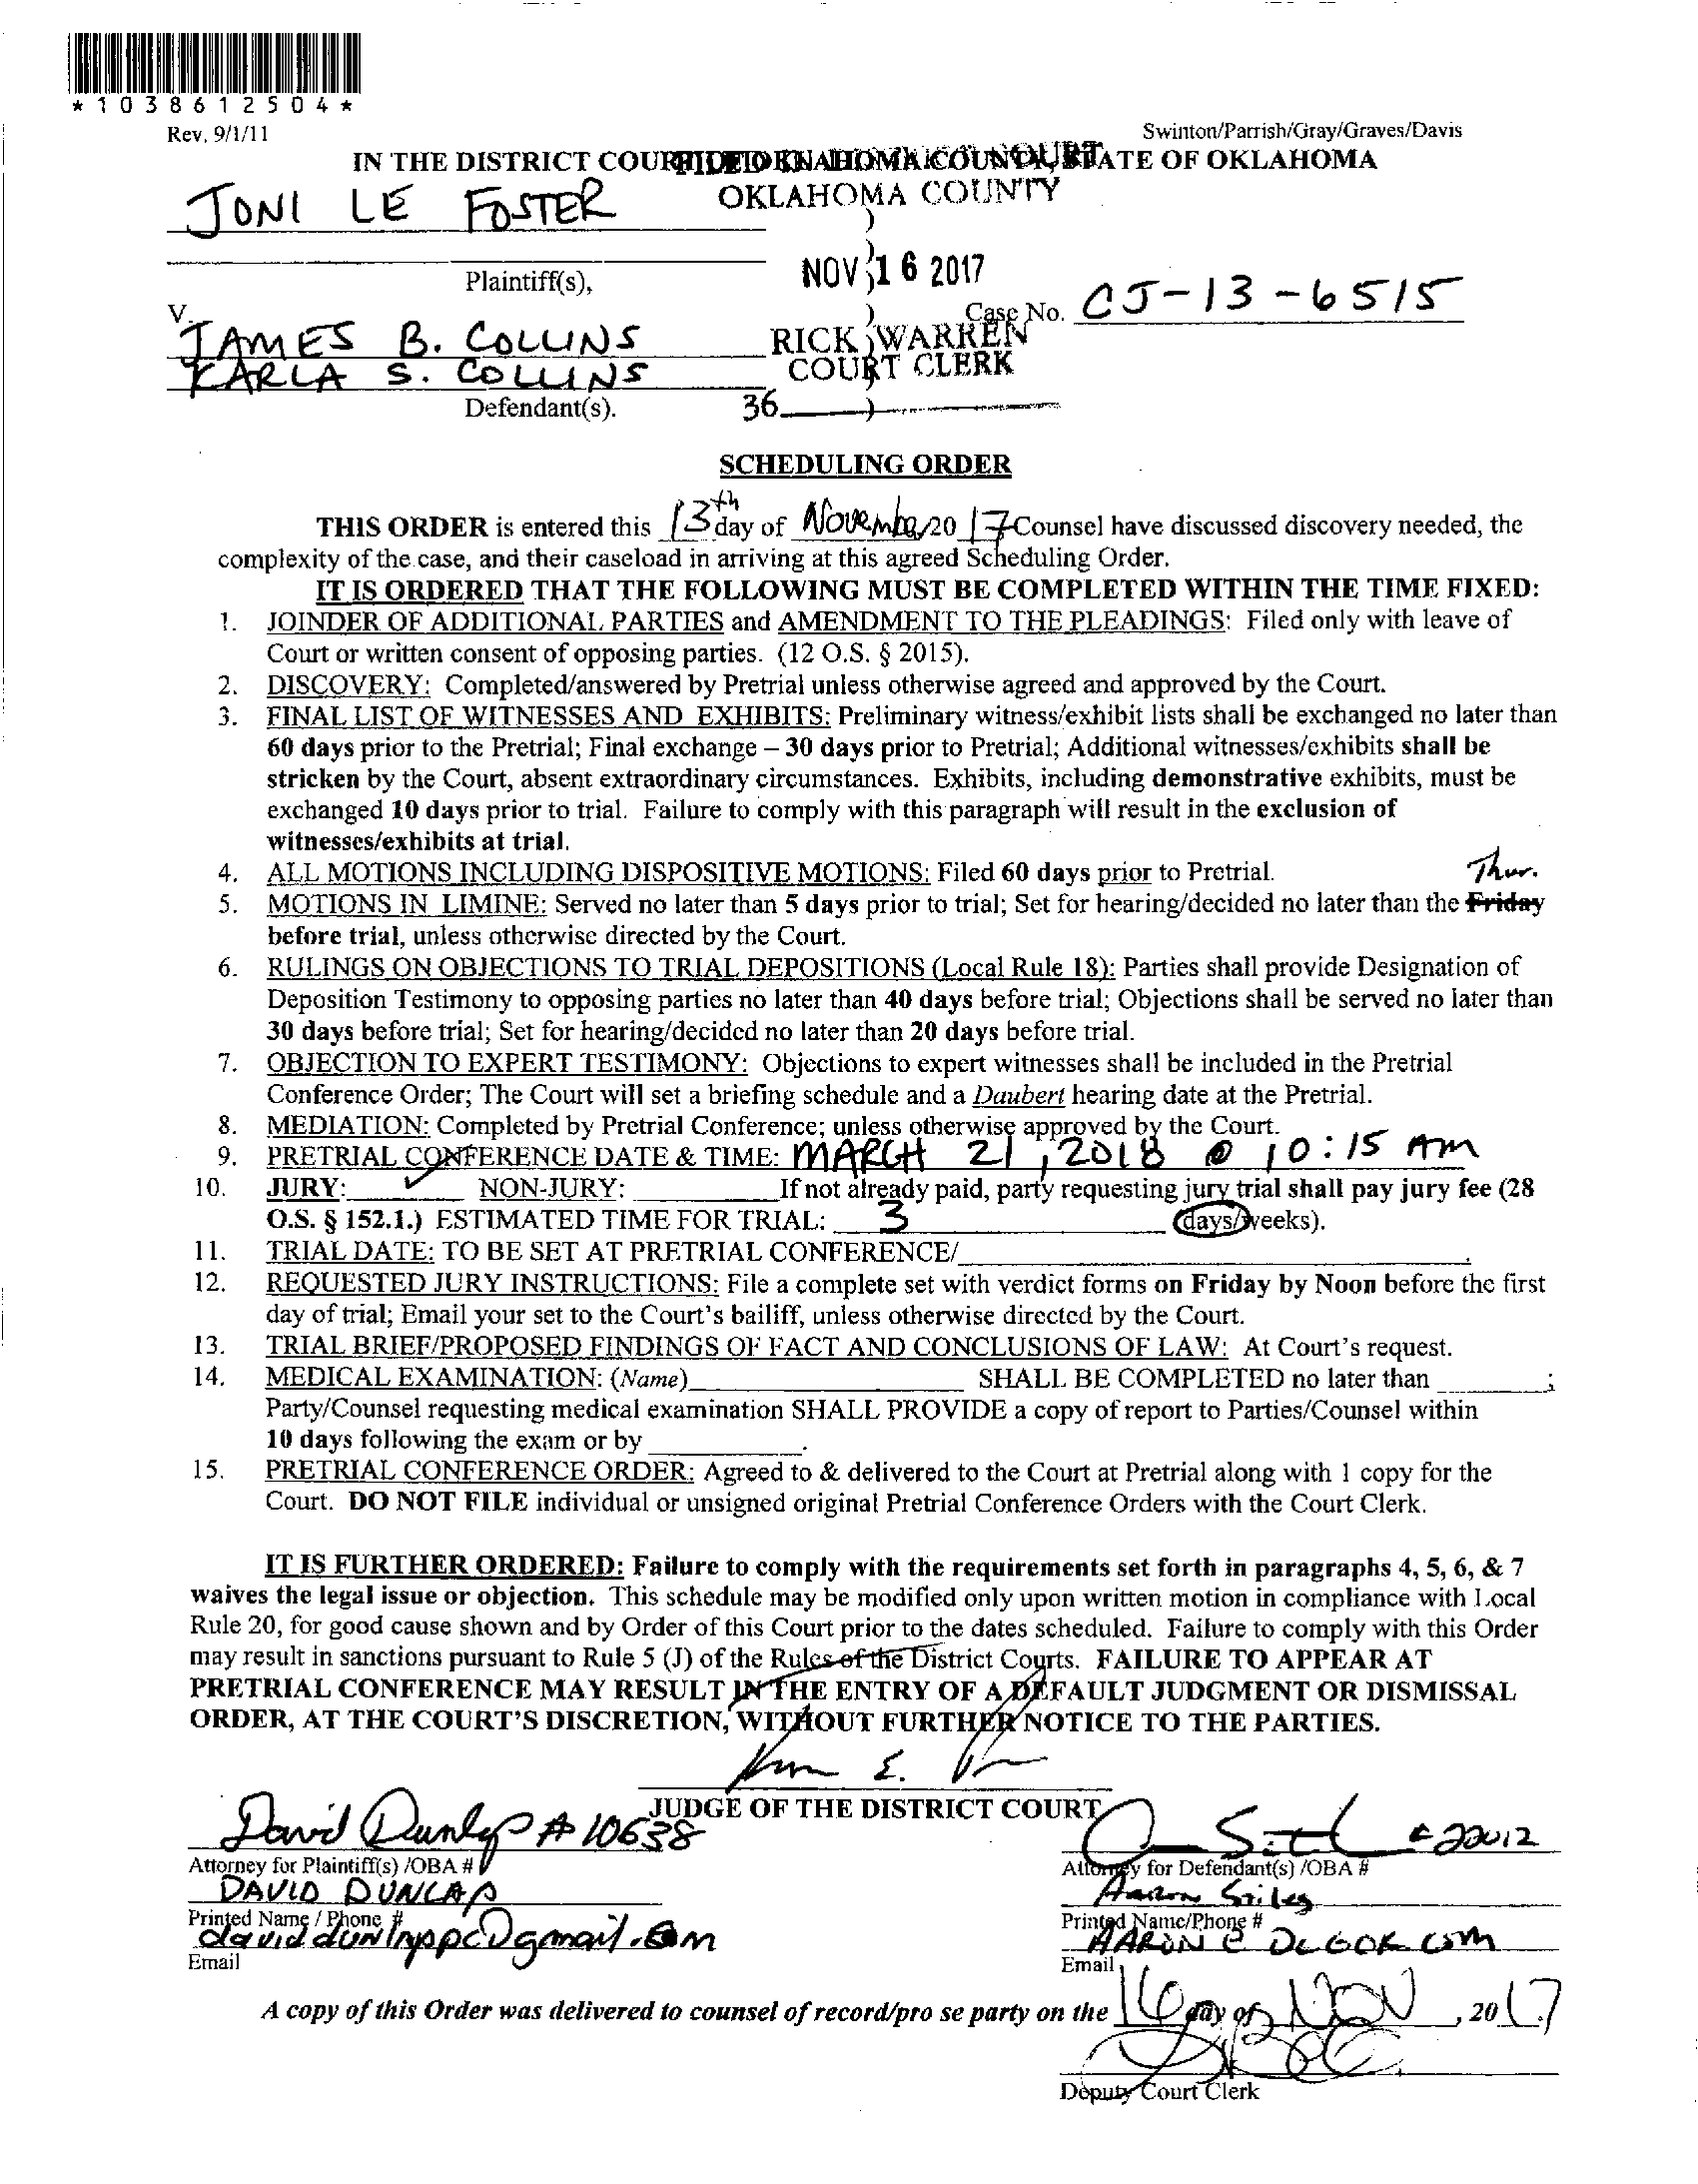 *1038612504*
Rev. 9/1/11
Swinton/Parrish/Gray/Graves/Davis
IN THE DISTRICT COURT OKLAHOMA COUNTY, STATE OF OKLAHOMA
JONI LE FOSTER
OKLAHOMA COUNTY
)
)
Plaintiff(s),
NOV 16 2017
V.
)
Case No. CJ-13-6515
JAMES B. COLLINS
RICK WARREN
KARLA S. COLLINS
COURT CLERK
Defendant(s).
36
)
SCHEDULING ORDER
THIS ORDER is entered this 13th day of November, 2017 Counsel have discussed discovery needed, the
complexity of the case, and their caseload in arriving at this agreed Scheduling Order.
IT IS ORDERED THAT THE FOLLOWING MUST BE COMPLETED WITHIN THE TIME FIXED:
1. JOINDER OF ADDITIONAL PARTIES and AMENDMENT TO THE PLEADINGS: Filed only with leave of
Court or written consent of opposing parties. (12 O.S. § 2015).
2. DISCOVERY: Completed/answered by Pretrial unless otherwise agreed and approved by the Court.
3. FINAL LIST OF WITNESSES AND EXHIBITS: Preliminary witness/exhibit lists shall be exchanged no later than
60 days prior to the Pretrial; Final exchange – 30 days prior to Pretrial; Additional witnesses/exhibits shall be
stricken by the Court, absent extraordinary circumstances. Exhibits, including demonstrative exhibits, must be
exchanged 10 days prior to trial. Failure to comply with this paragraph will result in the exclusion of
witnesses/exhibits at trial.
4. ALL MOTIONS INCLUDING DISPOSITIVE MOTIONS: Filed 60 days prior to Pretrial.
Thur.
5. MOTIONS IN LIMINE: Served no later than 5 days prior to trial; Set for hearing/decided no later than the Friday
before trial, unless otherwise directed by the Court.
6. RULINGS ON OBJECTIONS TO TRIAL DEPOSITIONS (Local Rule 18): Parties shall provide Designation of
Deposition Testimony to opposing parties no later than 40 days before trial; Objections shall be served no later than
30 days before trial; Set for hearing/decided no later than 20 days before trial.
7. OBJECTION TO EXPERT TESTIMONY: Objections to expert witnesses shall be included in the Pretrial
Conference Order; The Court will set a briefing schedule and a Daubert hearing date at the Pretrial.
8. MEDIATION: Completed by Pretrial Conference; unless otherwise approved by the Court.
9. PRETRIAL CONFERENCE DATE & TIME: MARCH 21, 2018 @ 10:15 AM
10. JURY: ✓ NON-JURY: If not already paid, party requesting jury trial shall pay jury fee (28
O.S. § 152.1.) ESTIMATED TIME FOR TRIAL: 3 (days/weeks).
11. TRIAL DATE: TO BE SET AT PRETRIAL CONFERENCE/ .
12. REQUESTED JURY INSTRUCTIONS: File a complete set with verdict forms on Friday by Noon before the first
day of trial; Email your set to the Court's bailiff, unless otherwise directed by the Court.
13. TRIAL BRIEF/PROPOSED FINDINGS OF FACT AND CONCLUSIONS OF LAW: At Court's request.
14. MEDICAL EXAMINATION: (Name) SHALL BE COMPLETED no later than ;
Party/Counsel requesting medical examination SHALL PROVIDE a copy of report to Parties/Counsel within
10 days following the exam or by .
15. PRETRIAL CONFERENCE ORDER: Agreed to & delivered to the Court at Pretrial along with 1 copy for the
Court. DO NOT FILE individual or unsigned original Pretrial Conference Orders with the Court Clerk.
IT IS FURTHER ORDERED: Failure to comply with the requirements set forth in paragraphs 4, 5, 6, & 7
waives the legal issue or objection. This schedule may be modified only upon written motion in compliance with Local
Rule 20, for good cause shown and by Order of this Court prior to the dates scheduled. Failure to comply with this Order
may result in sanctions pursuant to Rule 5 (J) of the Rules of the District Courts. FAILURE TO APPEAR AT
PRETRIAL CONFERENCE MAY RESULT IN THE ENTRY OF A DEFAULT JUDGMENT OR DISMISSAL
ORDER, AT THE COURT'S DISCRETION, WITHOUT FURTHER NOTICE TO THE PARTIES.
JUDGE OF THE DISTRICT COURT
David Dunlap # 10638
# 22012
Attorney for Plaintiff(s) /OBA #
Attorney for Defendant(s) /OBA #
DAVID DUNLAP
Aaron Stiles
Printed Name / Phone #
Printed Name/Phone #
AARON@DLGOK.COM
Email
Email
A copy of this Order was delivered to counsel of record/pro se party on the 16 day of NOV, 2017
Deputy Court Clerk